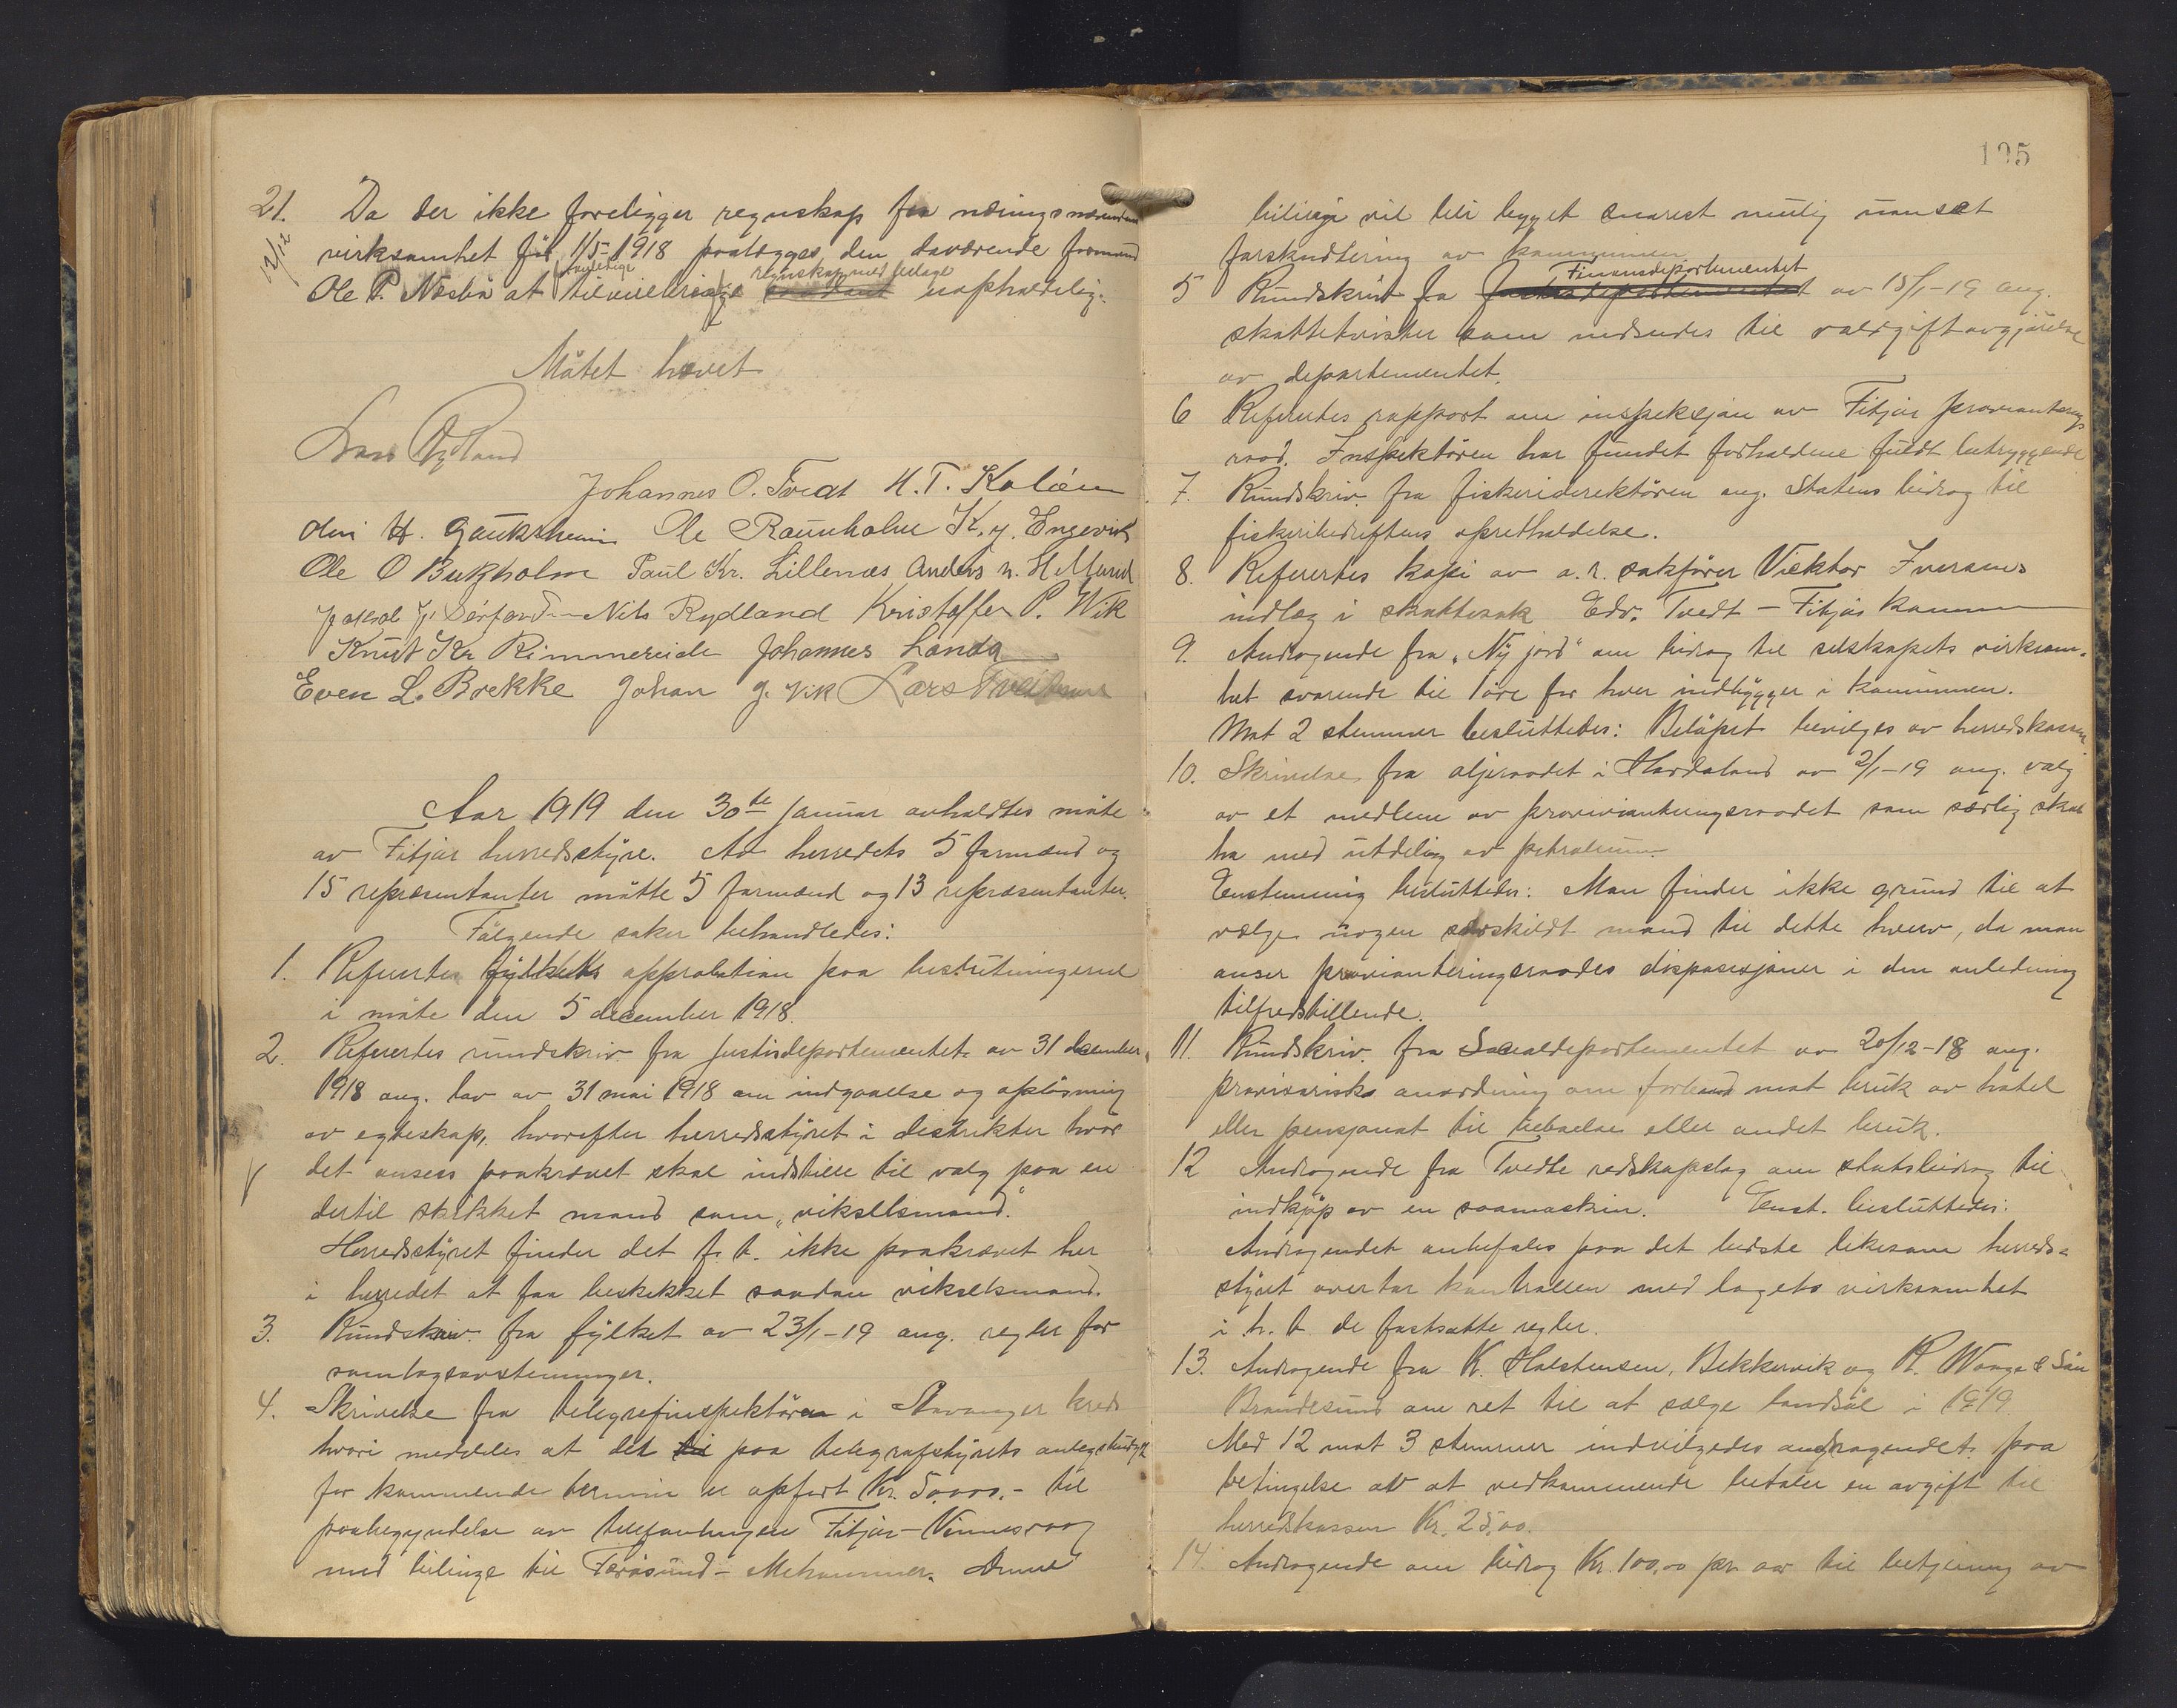 21. Da der ikke foreligger regnskap fra næringsnævndens
12/12
virksomhet før 1/5-1918 paalægges den daværende formand
Ole P. Næsbø at tilveiebringe regnskap med bilage uopholdelig.
Møtet hævet
Lars Rydland
Johannes O. Tveit H. T. Koløen
Olai H. Gauksheim Ole Raunholm K. J. Engevik
Ole O Bukholm Paul Kr. Lillenæs Anders N. H Mund
Nils Rydland Kristoffer P. Wik
Knut Kr Rimmereide Johannes Landa
Even L. Brekke Johan J. Vik Lars
Aar 1919 den 30te januar avholdtes møte
av Fitjar herredstyre. Av herredets 5 formænd og
15 repræsentanter møtte 5 formænd og 13 repræsentanter.
Følgende saker behandledes:
1. Referertes fylkets approbation paa beslutningerne
i møte den 5 december 1918.
2. Referertes rundskriv fra Justisdepartementet av 31 december
1918 ang. lov av 31 mai 1918 om indgaaelse og opløsning
av egteskap, hvorefter herredstyret i distrikter hvor
det ansees paakrævet skal indstille til valg paa en
dertil skikket mand som "vikselsmand".
Herredstyret finder det f. t. ikke paakrævet her
i herredet at faa beskikket saadan vikselsmand.
3. Rundskriv fra fylket av 23/1-19 ang. regler for
samlagsavstemninger.
4. Skrivelse fra telegrafinspektøren i Stavanger kreds
hvori meddeles at det til paa telegrafstyrets anlægsbudget
for kommende termin er opført Kr. 50,000.- til
paabegyndelse av telefonlinjen Fitjar-Vinnesvaag
med bilinje til Terøsund - Mehammer. Denne
195
bilinje vil bli bygget snarest mulig uanset
forskudtering av kommunen.
5 Rundskriv fra Finansdepartementet av 15/1-19 ang.
skattetvister som indsendes til voldgiftavgjørelse
av departementet.
6 Referertes rapport om inspeksjon av Fitjar provianterings
raad. Inspektøren har fundet forholdene fuldt betryggende
7. Rundskriv fra fiskeridirektøren ang. Statens bidrag til
fiskeribedriftens opretholdelse.
8. Referertes kopi av o.r. sakfører Viktor Iversens
indlæg i skattesak Edv. Tvedt - Fitjar kommune
9. Andragende fra "Ny jord" om bidrag til selskapets virksom-
het svarende til 1 øre for hver indbygger i kommunen.
Mot 2 stemmer besluttedes: Beløpet bevilges av herredskassen.
10. Skrivelse fra oljeraadet i Hordaland av 2/1-19 ang. valg
av et medlem av provianteringsraadet som særlig skal
ha med utdeling av petroleum.
Enstemmig besluttedes: Man finder ikke grund til at
vælge nogen særskildt mand til dette hverv, da man
anser provianteringsraades disposisjoner i den anledning
tilfredstillende.
11. Rundskriv. fra Socialdepartementet av 20/12-18 ang.
provisorisk anordning om forbud mot bruk av hotel
eller pensjonat til beboelse eller andet bruk.
12 Andragende fra Tvedte redskapslag om statsbidrag til
indkjøp av en saamaskin. Enst. besluttedes:
Andragendet anbefales paa det bedste likesom herreds-
styret overtar kontrollen med lagets virksomhet
i h. t. de fastsatte regler.
13. Andragende fra K. Halstensen, Bekkervik og P. Waage & Søn
Brandesund om ret til at sælge landsøl i 1919.
Med 12 mot 3 stemmer indvilgedes andragendet paa
betingelse av at vedkommende betaler en avgift til
herredskassen Kr. 25,00.
14. Andragende om bidrag Kr. 100,00 pr aar til betjening av